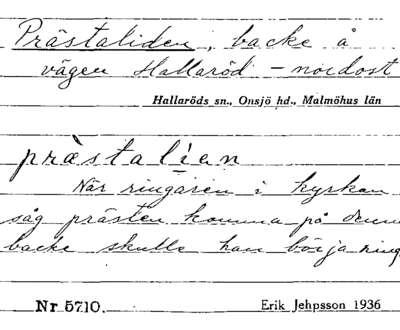 Prästaliden, backe å
vägen Hallaröd - nordost
Hallaröds sn., Onsjö hd., Malmöhus län
prästalien
När ringaren i kyrkan
såg prästen komma på denn
backe skulle han börja ring
Nr 5710.
Erik Jehpsson 1936